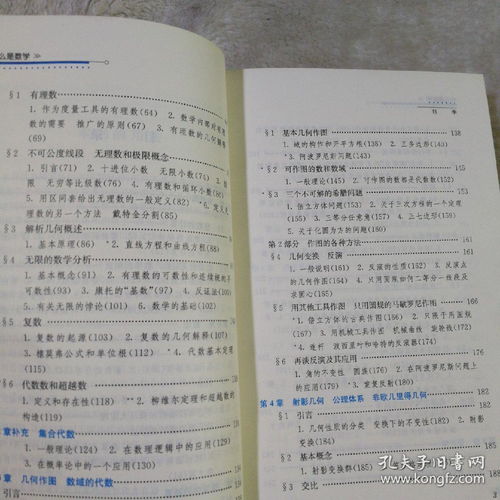 么是数学 ≫
§1 有理数
1. 作为度量工具的有理数(64) 2. 数学内部对有理
数的需要 推广的原则(67) 3. 有理数的几何解释
(69)
§2 不可公度线段 无理数和极限概念
1. 引言(71) 2. 十进位小数 无限小数(74) 3. 极
限 无穷等比级数(76) 4. 有理数和循环小数(80)
5. 用区间套给出无理数的一般定义(82) *6. 定义无
理数的另一个方法 戴特金分割(85)
§3 解析几何概述
1. 基本原理(86) *2. 直线方程和曲线方程(88)
§4 无限的数学分析
1. 基本概念(91) 2. 有理数的可数性和连续统的不
可数性(93) 3. 康托的“基数”(97) 4. 反证法(100)
5. 有关无限的悖论(101) 6. 数学的基础(102)
§5 复数
1. 复数的起源(103) 2. 复数的几何解释(107)
3. 棣莫弗公式和单位根(112) *4. 代数基本定理
(115)
§6 代数数和超越数
1. 定义和存在性(118) *2. 柳维尔定理和超越数的
构造(119)
章补充 集合代数
1. 一般理论(124) 2. 在数理逻辑中的应用(129)
3. 在概率论中的一个应用(130)
章 几何作图 数域的代数
引言
目 录
§1 基本几何作图 138
1. 域的构作和开平方根(138) 2. 正多边形(140)
*3. 阿波罗尼斯问题(143)
§2 可作图的数和数域 145
1. 一般理论(145) 2. 可作图的数都是代数数(152)
§3 三个不可解的希腊问题 153
1. 倍立方体问题(153) 2. 关于三次方程的一个定理
(155) 3. 三等分任意角(155) 4. 正七边形(157)
5. 关于化圆为方的问题(159)
第2部分 作图的各种方法 161
§4 几何变换 反演 161
1. 一般说明(161) 2. 反演的性质(162) 3. 反演点
的几何作图(164) 4. 只用圆规如何二等分一线段及
求圆心(165)
§5 用其他工具作图 只用圆规的马歇罗尼作图 166
*1. 倍立方体的古典作图(166) 2. 只限于用圆规
(167) 3. 用机械工具作图 机械曲线 旋轮线(172)
*4. 连杆 波西里叶和哈特的反演器(175)
§6 再谈反演及其应用 178
1. 角的不变性 圆族(178) 2. 在阿波罗尼斯问题上
的应用(179) 3. 重复反射(180)
第4章 射影几何 公理体系 非欧几里得几何 182
§1 引言 182
1. 几何性质的分类 变换下的不变性(182) 2. 射影
变换(184)
§2 基本概念
1. 射影变换群(185)
§3 交比
孔夫子旧书网